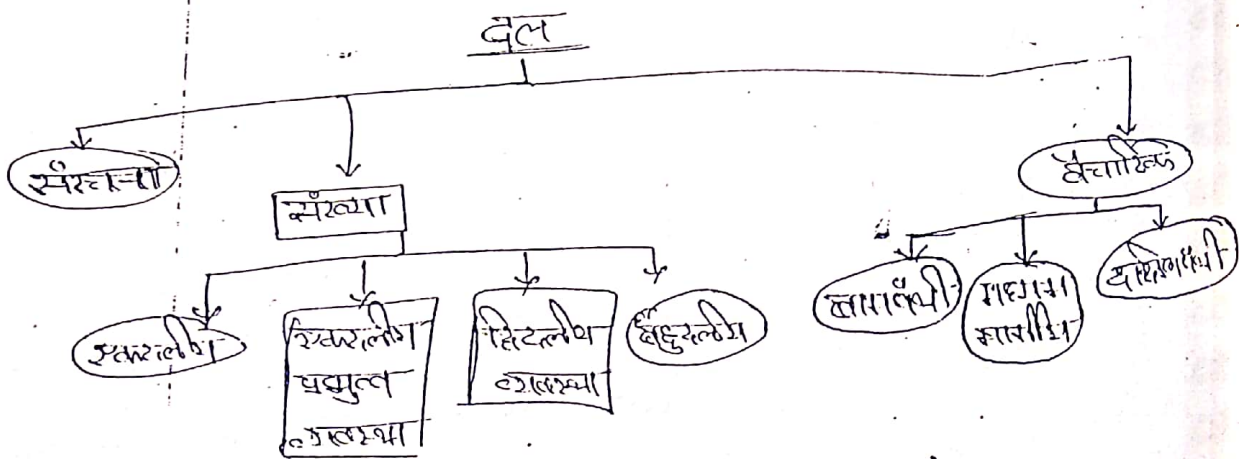 दल
संरचना
संख्या
वैचारिक
एकदलीय
एकदलीय
प्रभुत्व
व्यवस्था
द्विदलीय
व्यवस्था
बहुदलीय
वामपंथी
मध्यम
मार्गीय
दक्षिणपंथी